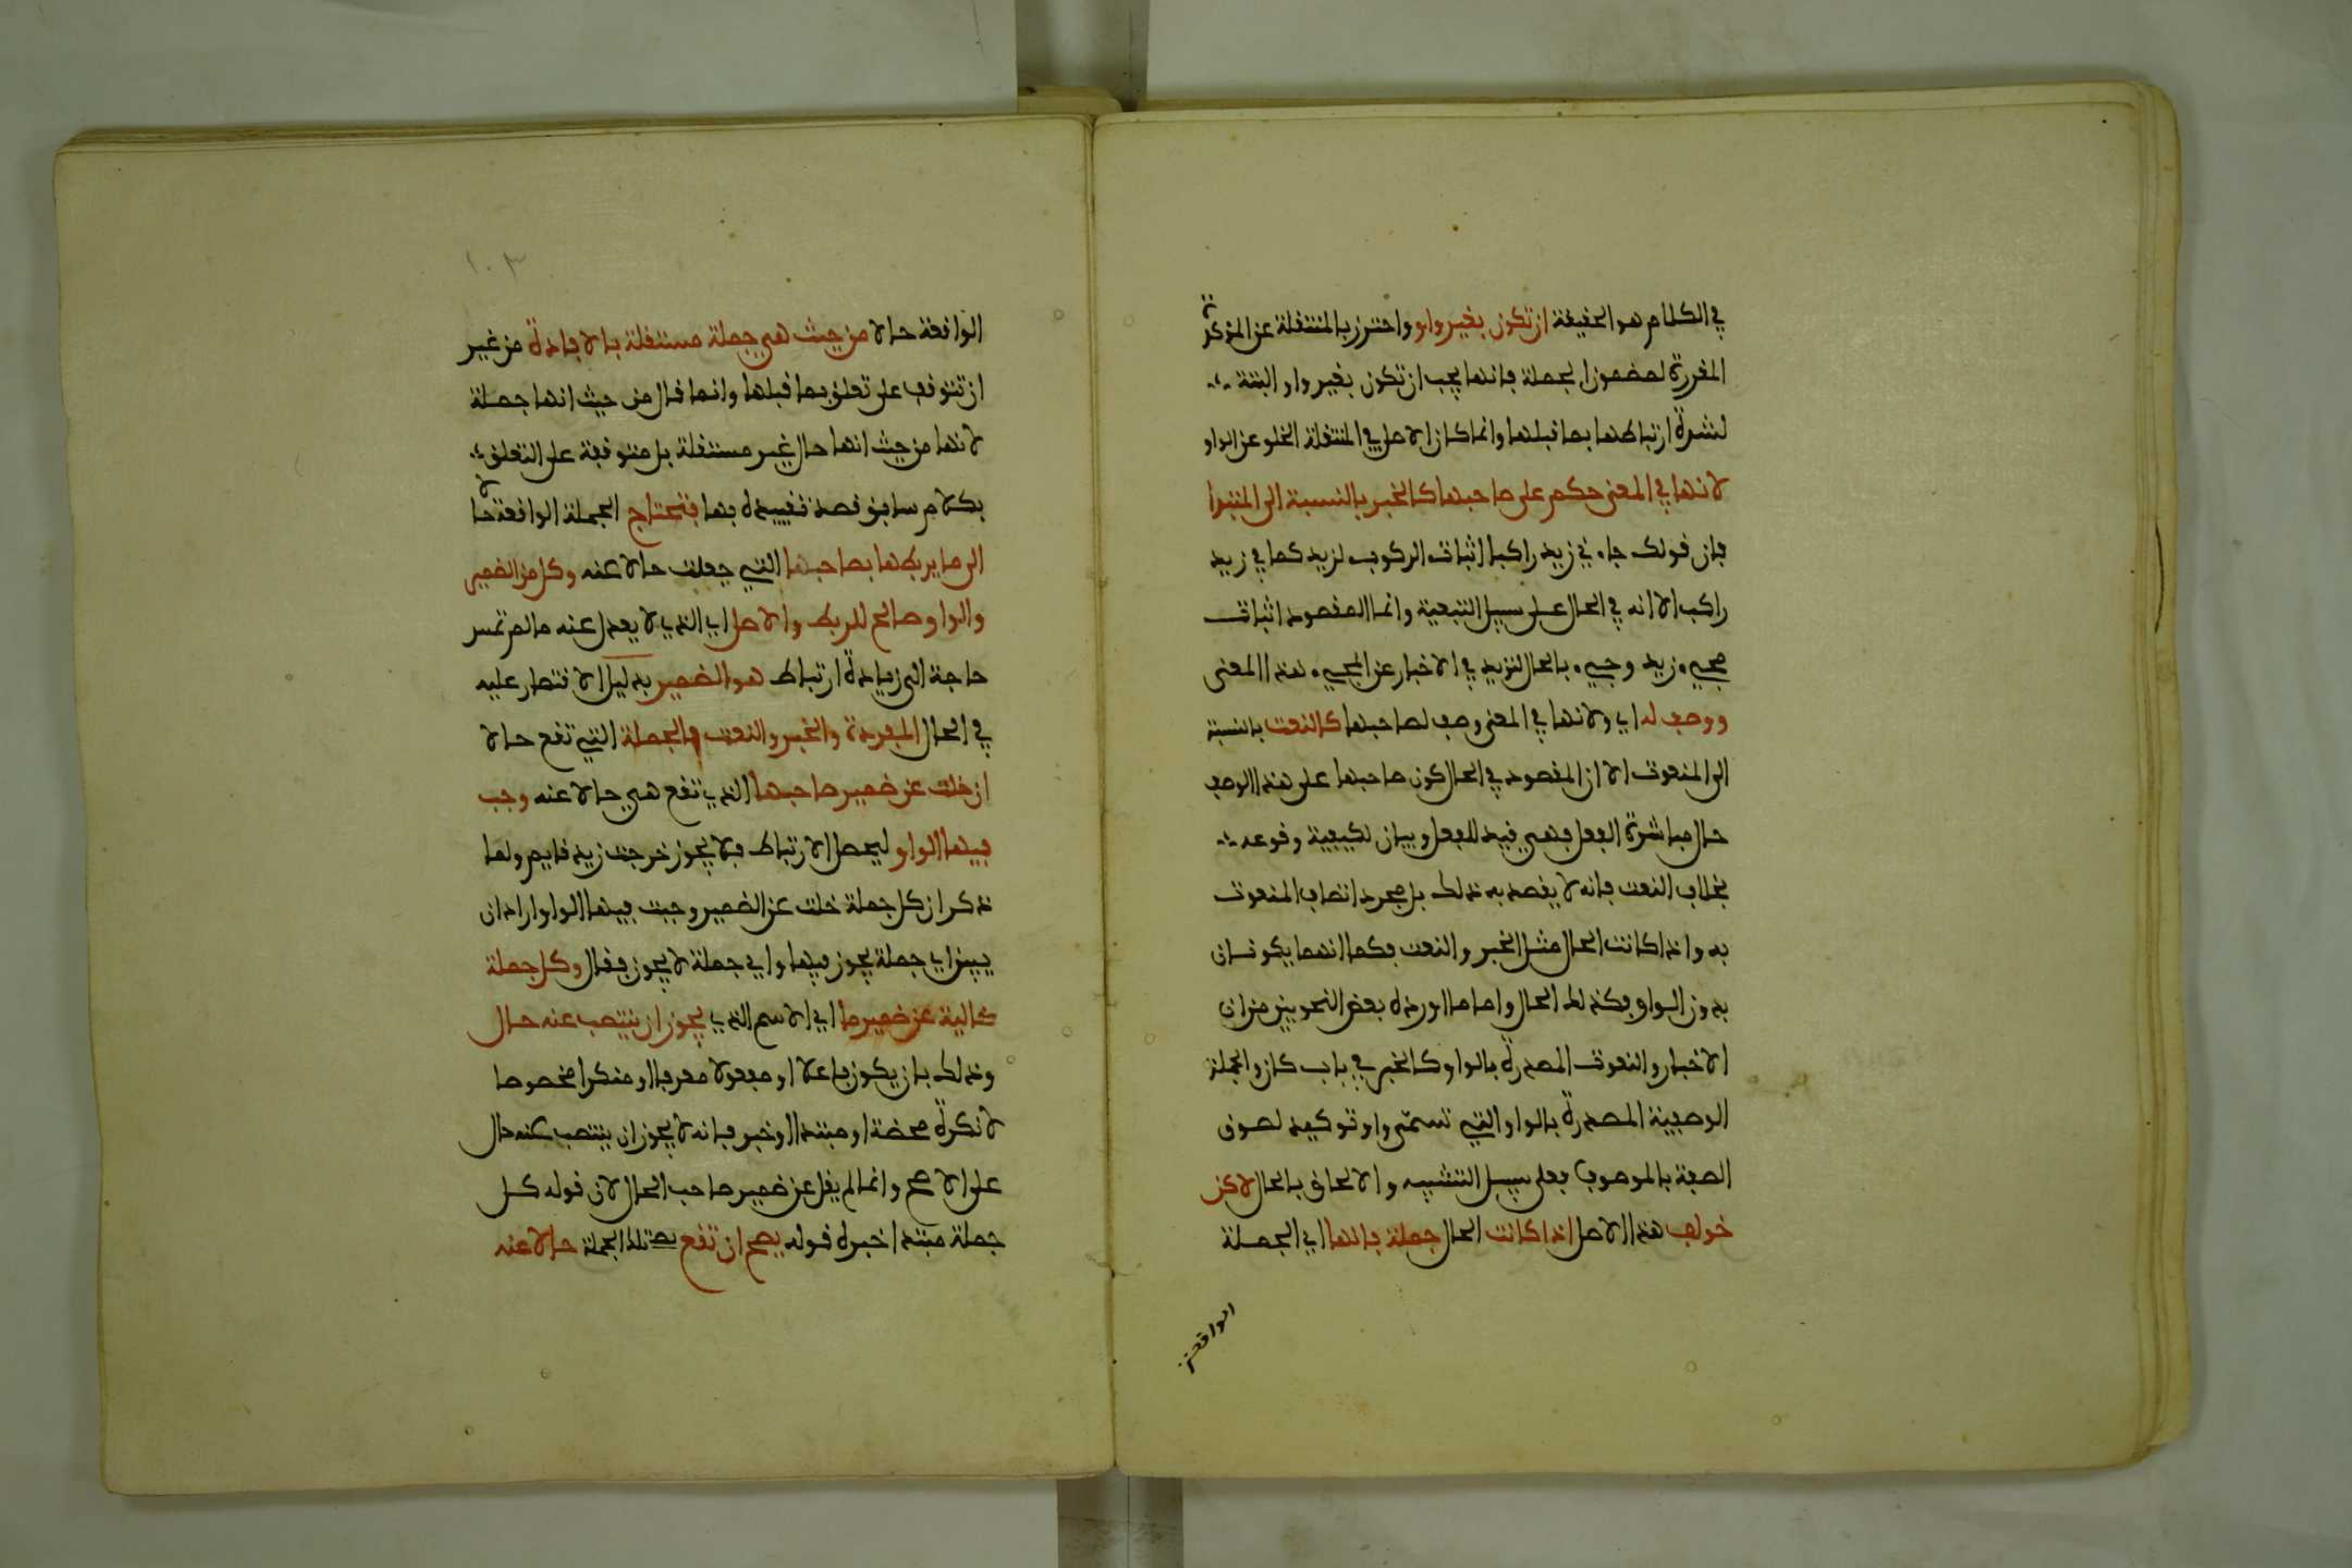 في الكلام هو الحقيقة ان تكون بغير واو واحترز بالمنتقلة عن المؤكدة
المقررة لمضمون الجملة فانها يجب ان تكون بغير واو البتة
لشدة ارتباطها بما قبلها وانما كان الاصل في المنتقلة الخلو عن الواو
لانها في المعنى حكم على صاحبها كالخبر بالنسبة الى المبتدا
فان قولك جاءني زيد راكبا اثبات الركوب لزيد كما في زيد
راكب الا انه في الحال على سبيل التبعية وانما المقصود اثبات
مجيء زيد وجيء بالحال لتزيد في الاخبار عن المجيء هذا المعنى
ووصف له اي ولانها في المعنى وصف لصاحبها كالنعت بالنسبة
الى المنعوت الا ان المقصود في الحال كون صاحبها على هذا الوصف
حال مباشرة الفعل فهي قيد للفعل وبيان لكيفية وقوعه
بخلاف النعت فانه لا يقصد به ذلك بل مجرد اتصاف المنعوت
به واذا كانت الحال مثل الخبر والنعت فكما انهما يكونان
بدون الواو فكذلك الحال واما ما اورده بعض النحويين من ان
الاخبار والنعوت المصدرة بالواو كالخبر في باب كان والجملة
الوصفية المصدرة بالواو التي تسمى واو توكيد لصوق
الصفة بالموصوف فعلى سبيل التشبيه والالحاق بالحال لاكن
خولف هذا الاصل اذا كانت الحال جملة فانها اي الجملة
الواقعة
١٠٣
الواقعة حالا من حيث هي جملة مستقلة بالافادة من غير
ان تتوقف على تعلق بما قبلها وانما قال من حيث انها جملة
لانها من حيث انها حال غير مستقلة بل متوقفة على التعلق
بكلام سابق قصد تقييده بها فتحتاج الجملة الواقعة حالا
الى ما يربطها بصاحبها التي جعلت حالا عنه وكل من الضمير
والواو صالح للربط والاصل اي الذي لا يعدل عنه ما لم تمس
حاجة الى زيادة ارتباط هو الضمير بدليل الاقتصار عليه
في الحال المفردة والخبر والنعت فالجملة التي تقع حالا
ان خلت عن ضمير صاحبها الذي تقع هي حالا عنه وجب
فيها الواو ليحصل الارتباط فلا يجوز خرجت زيد قايم ولما
ذكر ان كل جملة خلت عن الضمير وجبت فيها الواو اراد ان
يبين اي جملة يجوز فيها واي جملة لا يجوز فقال وكل جملة
خالية عن ضمير ما اي الاسم الذي يجوز ان ينتصب عنه حال
وذلك بان يكون فاعلا او مفعولا معرفا او منكرا مخصوصا
لا نكرة محضة او مبتدا او خبر فانه لا يجوز ان ينتصب عنه حال
على الاصح وانما لم يقل عن ضمير صاحب الحال لان قوله كل
جملة مبتدا خبره قوله يصح ان تقع تلك الجملة حالا عنه